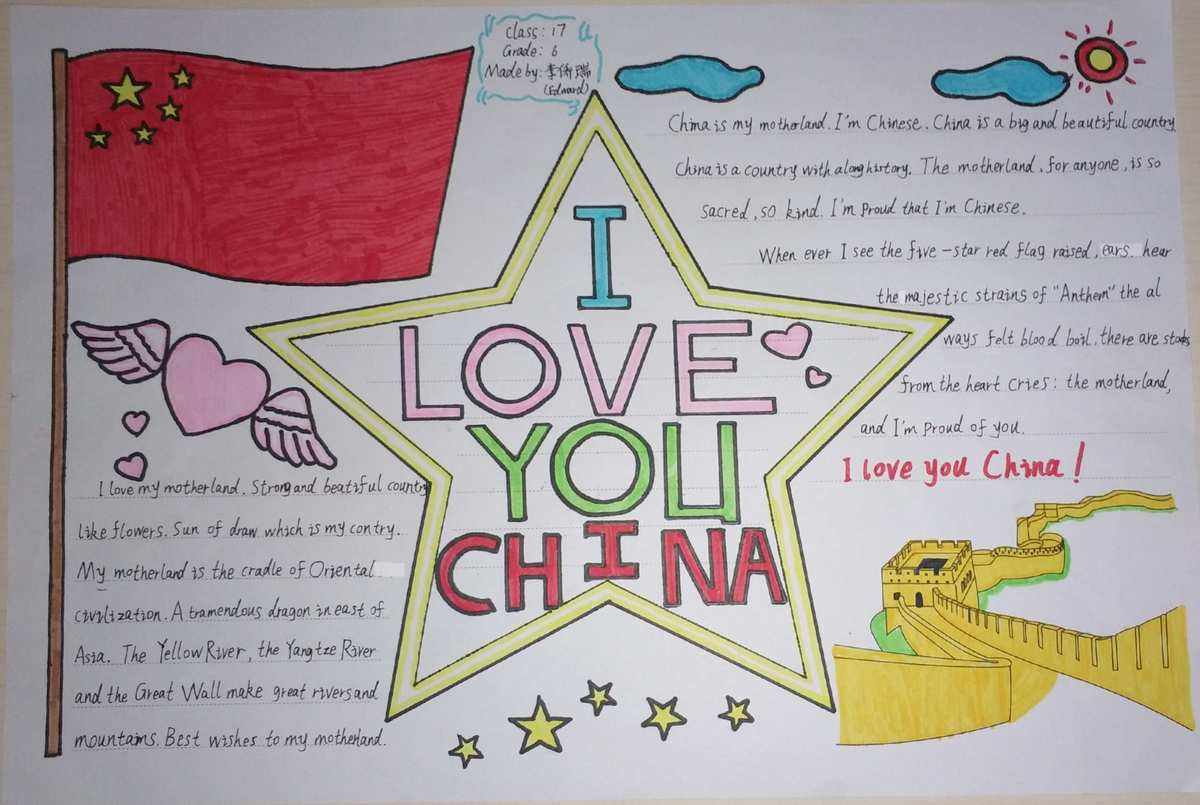 Class: 17
Grade: 6
Made by: 李侨瑞
(Edward)
China is my motherland. I'm Chinese. China is a big and beautiful country
China is a country with a long history. The motherland, for anyone, is so
sacred, so kind. I'm Proud that I'm Chinese.
When ever I see the five-star red flag raised, ears hear
the majestic strains of "Anthem" the al
ways felt blood boil. there are
from the heart cries: the motherland,
and I'm Proud of you.
I love you China!
I
LOVE
YOU
CHINA
I love my motherland. Strong and beatiful country
like flowers. Sun of draw which is my contry.
My motherland is the cradle of Oriental
civilization. A tramendous dragon in east of
Asia. The Yellow River, the Yangtze River
and the Great Wall make great rivers and
mountains. Best wishes to my motherland.